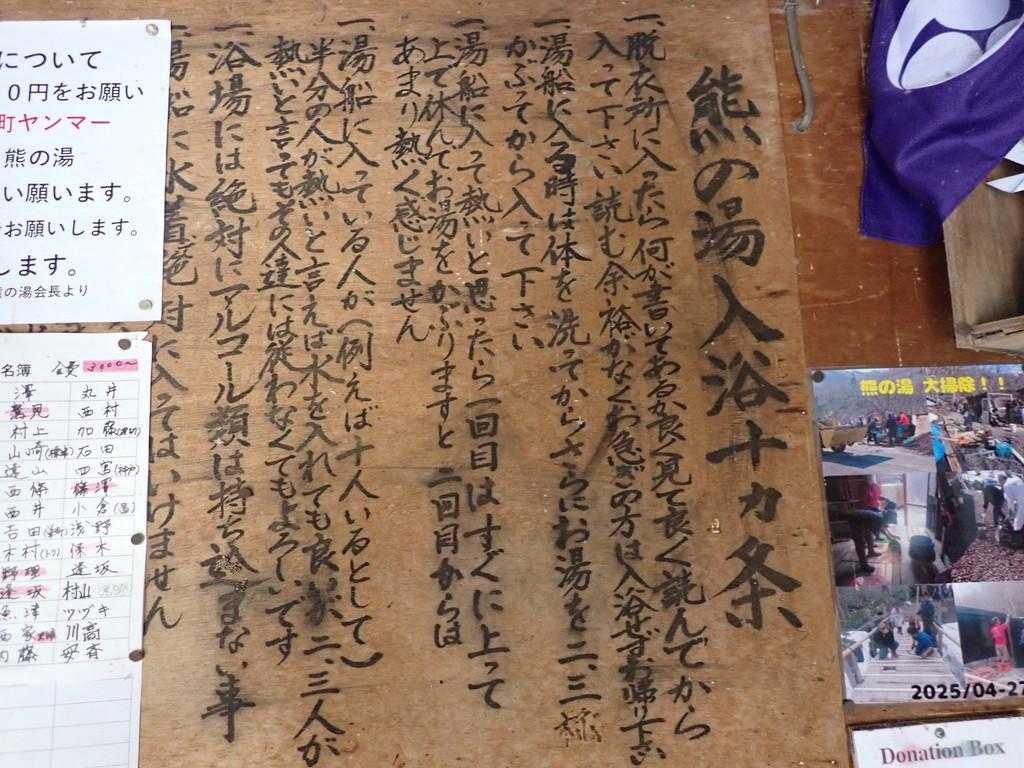 熊の湯入浴十カ条
一、脱衣所に入ったら何が書いてあるか良く見て良く読んでから
入って下さい読む余裕がなくお急ぎの方は入浴せずお帰り下さい
一、湯船に入る時は体を洗ってからさらにお湯を二、三様
かぶってから入って下さい
一、湯船に入って熱いと思ったら一回目はすぐに上って
上で休んでお湯をかぶりますと二回目からは
あまり熱く感じません
一、湯船に入っている人が(例えば十人いるとして)
半分の人が熱いと言えば水を入れても良いが二、三人が
熱いと言ってもその人達には従わなくてもよろしいです
一、浴場には絶対にアルコール類は持ち込まない事
一、湯船に水着絶対に入ってはいけません
について
０円をお願い
町ヤンマー
熊の湯
い願います。
お願いします。
します。
の湯会長より
名簿 会費
澤 丸井
鷲見 西村
村上 加藤
山崎 石田
遠山 四宮
西條 篠澤
西井 小倉
吉田 浅野
木村 俵木
野理 逢坂
逢坂 村山
魚津 ツヅキ
西家 川高
内藤
熊の湯 大掃除！！
2025/04-27
Donation Box